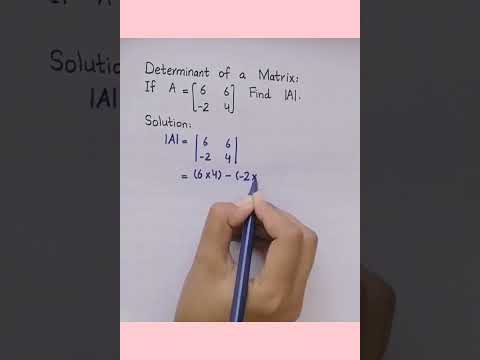 Determinant of a Matrix:
If A = [6 6
-2 4] Find |A|.
Solution:
|A| = |6 6
-2 4|
= (6×4) - (-2×